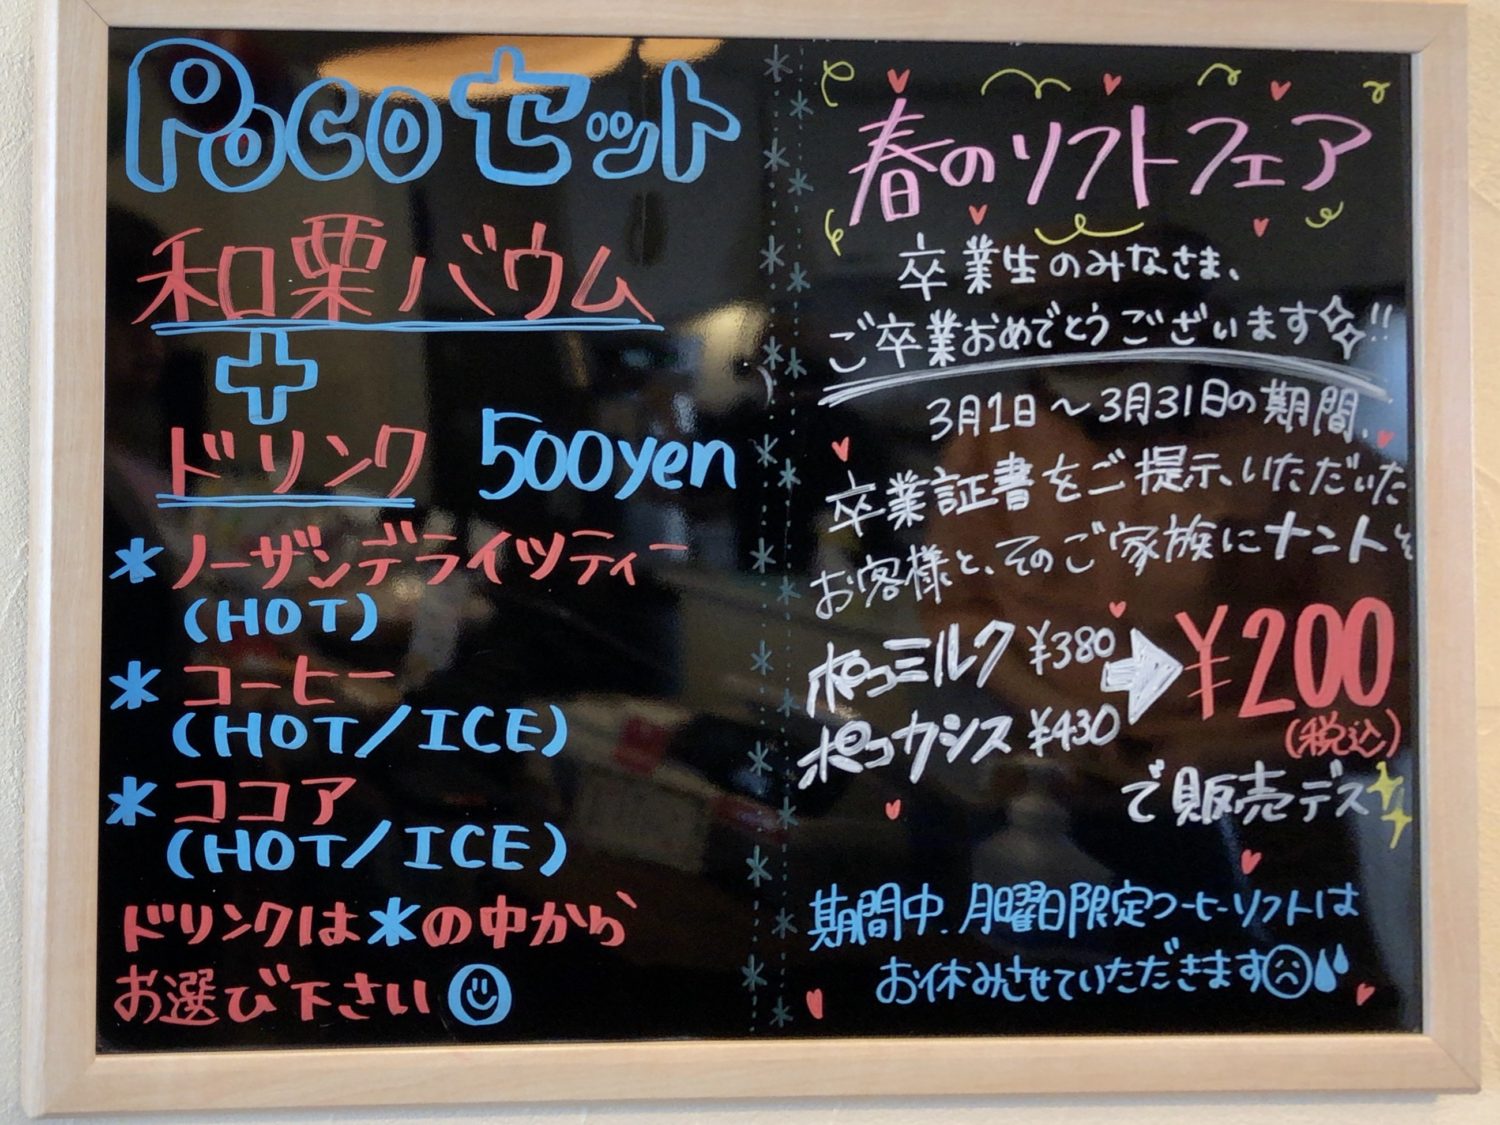 Pocoセット
和栗バウム
+
ドリンク 500yen
*ノーザンデライツティー
(HOT)
*コーヒー
(HOT/ICE)
*ココア
(HOT/ICE)
ドリンクは*の中から
お選び下さい
春のソフトフェア
卒業生のみなさま、
ご卒業おめでとうございます!!
3月1日~3月31日の期間、
卒業証書をご提示いただいた
お客様と、そのご家族にナントを
ポコミルク ¥380
ポコカシス ¥430
➡ ¥200
(税込)
で販売デス
期間中、月曜日限定コーヒーソフトは
お休みさせていただきます